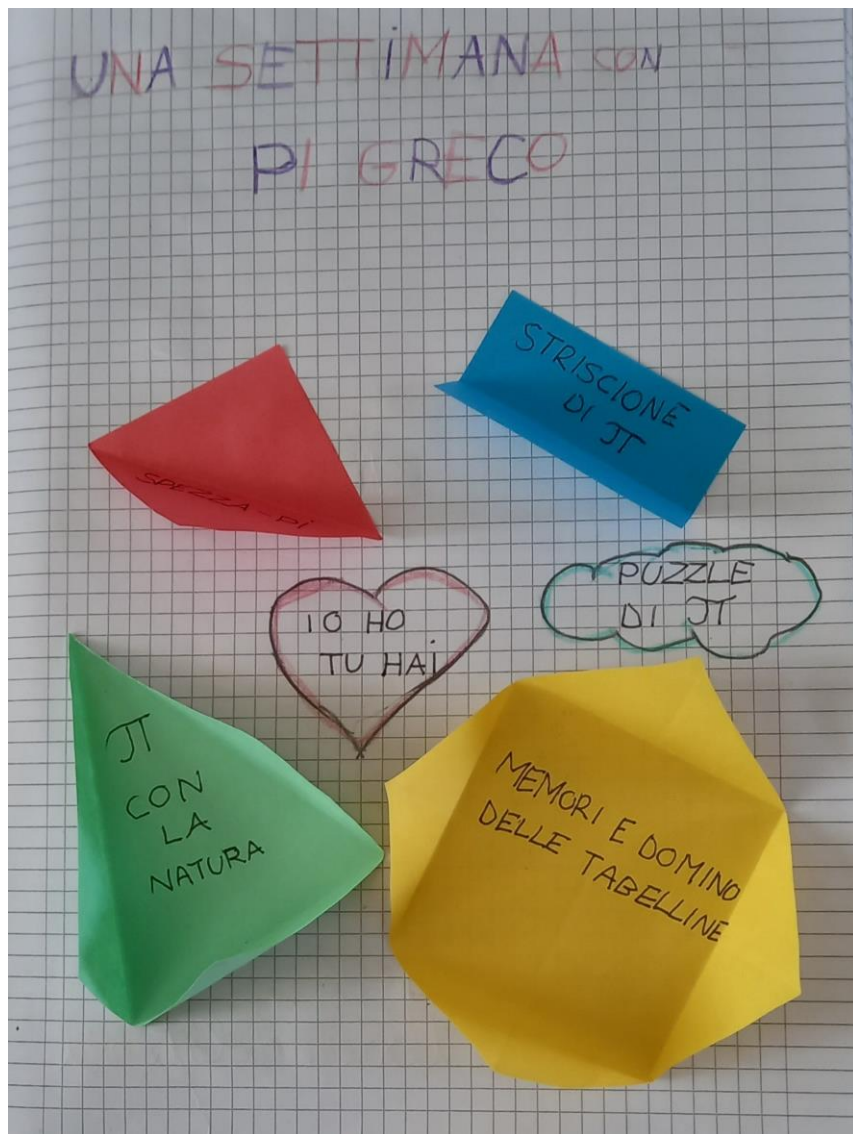 UNA SETTIMANA CON
PI GRECO
STRISCIONE
DI π
SPEZZA-PI
IO HO
TU HAI
PUZZLE
DI π
π
CON
LA
NATURA
MEMORI E DOMINO
DELLE TABELLINE